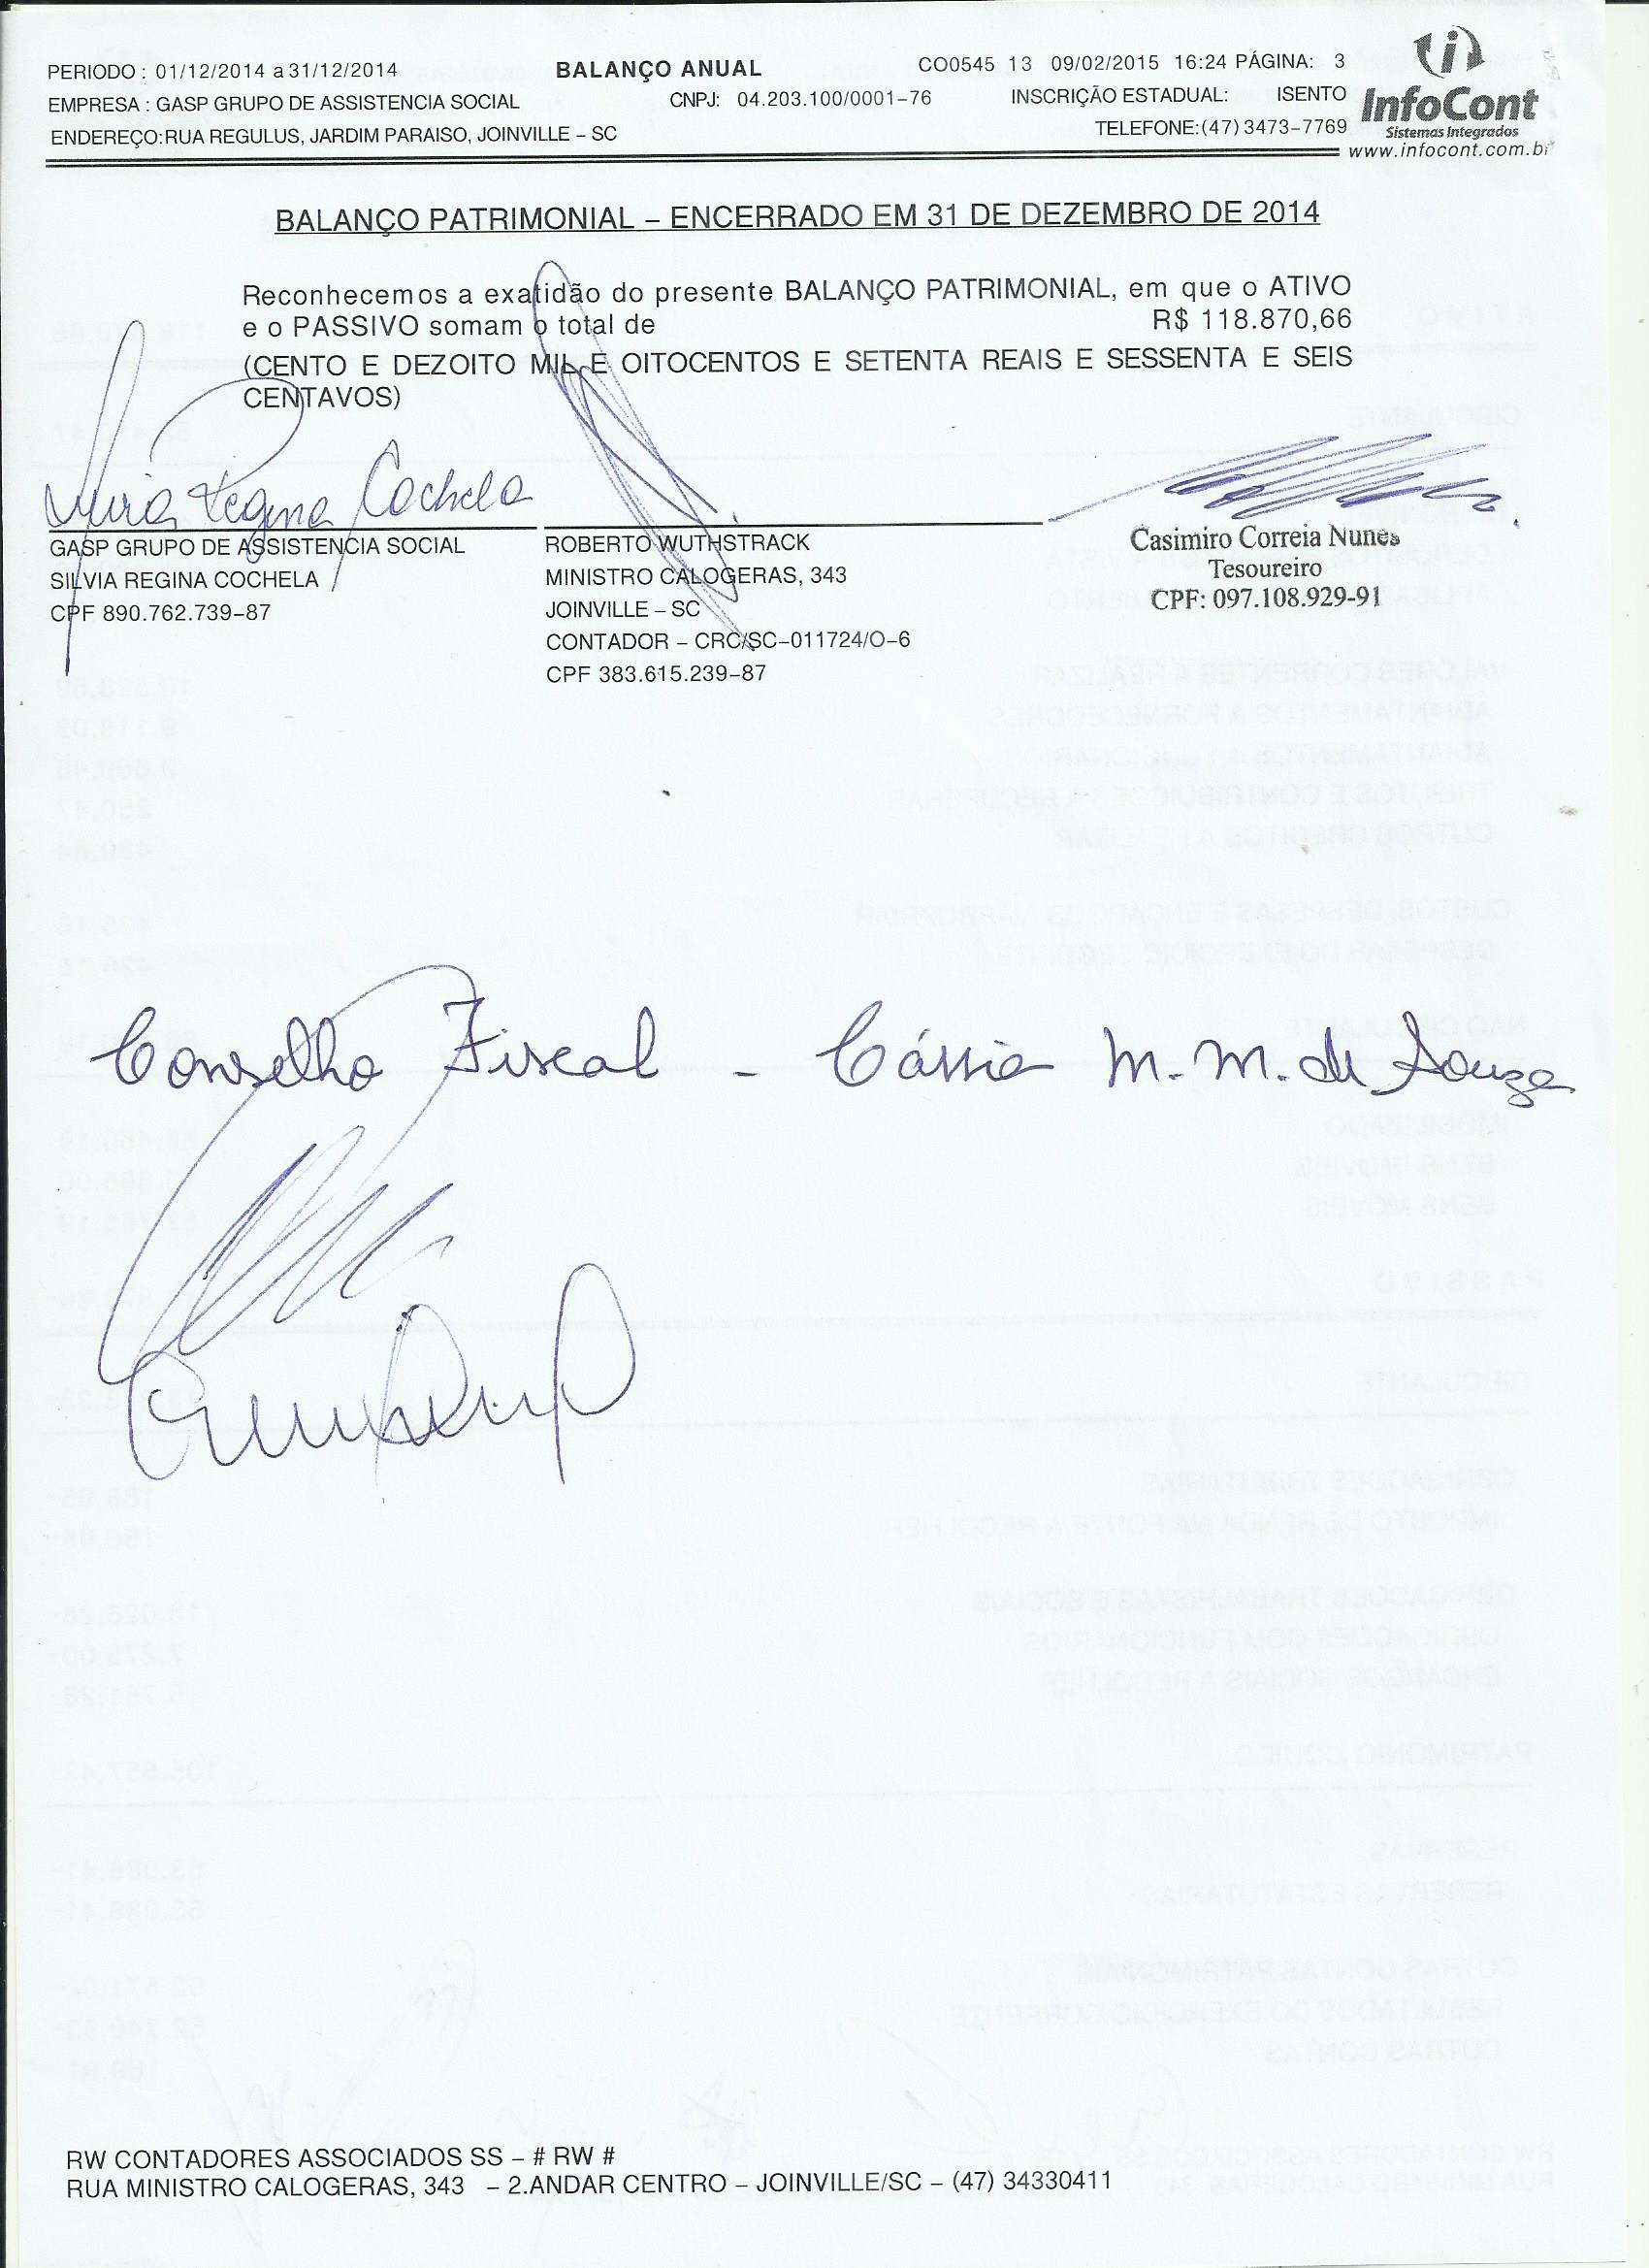 PERIODO : 01/12/2014 a 31/12/2014 BALANÇO ANUAL CO0545 13 09/02/2015 16:24 PÁGINA: 3
EMPRESA : GASP GRUPO DE ASSISTENCIA SOCIAL CNPJ: 04.203.100/0001-76 INSCRIÇÃO ESTADUAL: ISENTO
ENDEREÇO:RUA REGULUS, JARDIM PARAISO, JOINVILLE - SC TELEFONE:(47)3473-7769
InfoCont
Sistemas Integrados
www.infocont.com.br
BALANÇO PATRIMONIAL - ENCERRADO EM 31 DE DEZEMBRO DE 2014
Reconhecemos a exatidão do presente BALANÇO PATRIMONIAL, em que o ATIVO
e o PASSIVO somam o total de R$ 118.870,66
(CENTO E DEZOITO MIL E OITOCENTOS E SETENTA REAIS E SESSENTA E SEIS
CENTAVOS)
Silvia Regina Cochela
GASP GRUPO DE ASSISTENCIA SOCIAL
SILVIA REGINA COCHELA
CPF 890.762.739-87
ROBERTO WUTHSTRACK
MINISTRO CALOGERAS, 343
JOINVILLE - SC
CONTADOR - CRC/SC-011724/O-6
CPF 383.615.239-87
Casimiro Correia Nunes
Tesoureiro
CPF: 097.108.929-91
Conselho Fiscal - Cássia M. M. de Souza
RW CONTADORES ASSOCIADOS SS - # RW #
RUA MINISTRO CALOGERAS, 343 - 2.ANDAR CENTRO - JOINVILLE/SC - (47) 34330411